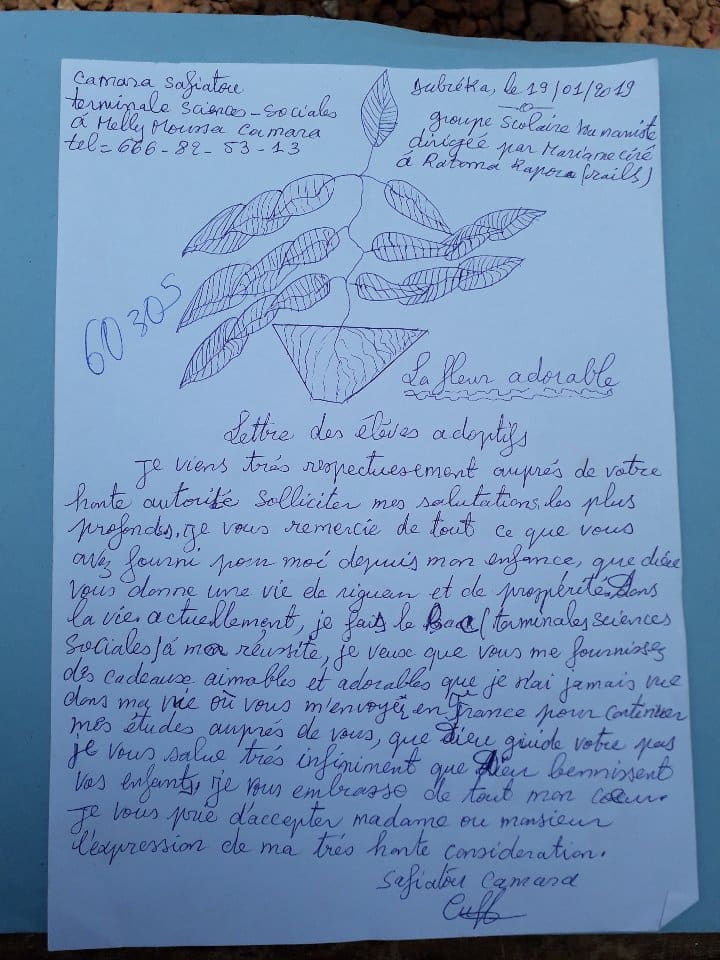 Camara Safiatou
terminale Sciences-Sociales
à Melly Moussa Camara
tel= 666-82-53-13
Dubréka, le 19/01/2019
groupe Scolaire humaniste
dirigeé par Mariame ciré
à Ratoma Kapora (rails)
60305
La fleur adorable
Lettre des élèves adoptifs
Je viens trés respectuesement auprés de votre
honte autorité Solliciter mes salutations les plus
profondes. je vous remercie de tout ce que vous
avez fourni pour moi depuis mon enfance, que dieu
vous donne une vie de riguen et de propérité dans
la vie. actuellement, je fais le bac (terminales sciences
sociales) á ma réussite, je veux que vous me fournissez
des cadeaux aimables et adorables que je n'ai jamais vue
dans ma vie où vous m'envoyez en France pour continuer
mes études auprés de vous, que Dieu guide votre pas
je vous salue trés infiniment que Dieu bennissent
vos enfants, je vous embrasse de tout mon coeur.
Je vous prie d'accepter madame ou monsieur
l'expression de ma trés honte consideration.
Safiatou Camara